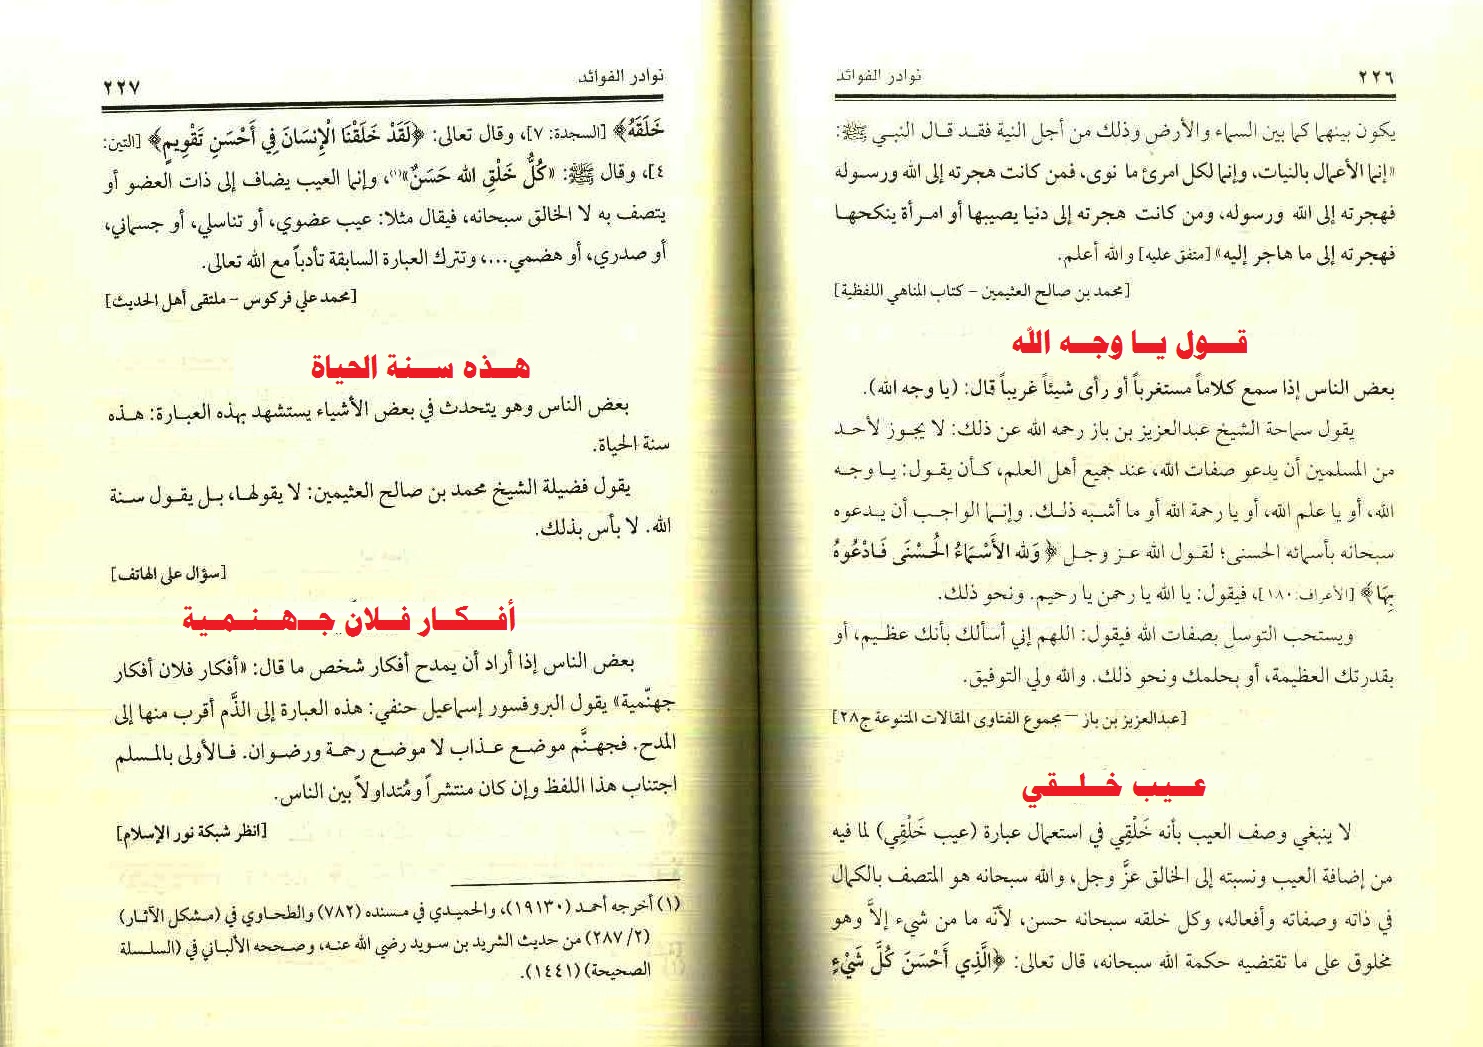 نوادر الفوائد ٢٢٦
يكون بينهما كما بين السماء والأرض وذلك من أجل النية فقد قال النبي ﷺ:
«إنما الأعمال بالنيات، وإنما لكل امرئ ما نوى، فمن كانت هجرته إلى الله ورسوله
فهجرته إلى الله ورسوله، ومن كانت هجرته إلى دنيا يصيبها أو امرأة ينكحها
فهجرته إلى ما هاجر إليه» [متفق عليه] والله أعلم.
[محمد بن صالح العثيمين – كتاب المناهي اللفظية]
قول يا وجه الله
بعض الناس إذا سمع كلاماً مستغرباً أو رأى شيئاً غريباً قال: (يا وجه الله).
يقول سماحة الشيخ عبدالعزيز بن باز رحمه الله عن ذلك: لا يجوز لأحد
من المسلمين أن يدعو صفات الله، عند جميع أهل العلم، كأن يقول: يا وجه
الله، أو يا علم الله، أو يا رحمة الله أو ما أشبه ذلك. وإنما الواجب أن يدعوه
سبحانه بأسمائه الحسنى؛ لقول الله عز وجل ﴿وَلله الأَسْمَاءُ الْحُسْنَى فَادْعُوهُ
بِهَا﴾ [الأعراف: ١٨٠]، فيقول: يا الله يا رحمن يا رحيم. ونحو ذلك.
ويستحب التوسل بصفات الله فيقول: اللهم إني أسألك بأنك عظيم، أو
بقدرتك العظيمة، أو بحلمك ونحو ذلك. والله ولي التوفيق.
[عبدالعزيز بن باز – مجموع الفتاوى المقالات المتنوعة ج٢٨]
عيب خلقي
لا ينبغي وصف العيب بأنه خَلْقِي في استعمال عبارة (عيب خَلْقِي) لما فيه
من إضافة العيب ونسبته إلى الخالق عزَّ وجل، والله سبحانه هو المتصف بالكمال
في ذاته وصفاته وأفعاله، وكل خلقه سبحانه حسن، لأنّه ما من شيء إلاَّ وهو
مخلوق على ما تقتضيه حكمة الله سبحانه، قال تعالى: ﴿الَّذِي أَحْسَنَ كُلَّ شَيْءٍ
نوادر الفوائد ٢٢٧
خَلَقَهُ﴾ [السجدة: ٧]، وقال تعالى: ﴿لَقَدْ خَلَقْنَا الْإِنسَانَ فِي أَحْسَنِ تَقْوِيمٍ﴾ [التين:
٤]، وقال ﷺ: «كُلُّ خَلْقِ الله حَسَنٌ»(١)، وإنما العيب يضاف إلى ذات العضو أو
يتصف به لا الخالق سبحانه، فيقال مثلا: عيب عضوي، أو تناسلي، أو جسماني،
أو صدري، أو هضمي...، وتترك العبارة السابقة تأدباً مع الله تعالى.
[محمد علي فركوس – ملتقى أهل الحديث]
هذه سنة الحياة
بعض الناس وهو يتحدث في بعض الأشياء يستشهد بهذه العبارة: هذه
سنة الحياة.
يقول فضيلة الشيخ محمد بن صالح العثيمين: لا يقولها، بل يقول سنة
الله. لا بأس بذلك.
[سؤال على الهاتف]
أفكار فلان جهنمية
بعض الناس إذا أراد أن يمدح أفكار شخص ما قال: «أفكار فلان أفكار
جهنّمية» يقول البروفسور إسماعيل حنفي: هذه العبارة إلى الذَّم أقرب منها إلى
المدح. فجهنَّم موضع عذاب لا موضع رحمة ورضوان. فالأولى بالمسلم
اجتناب هذا اللفظ وإن كان منتشراً ومُتداولاً بين الناس.
[انظر شبكة نور الإسلام]
(١) أخرجه أحمد (١٩١٣٠)، والحميدي في مسنده (٧٨٢) والطحاوي في (مشكل الآثار)
(٢/ ٢٨٧) من حديث الشريد بن سويد رضي الله عنه، وصححه الألباني في (السلسلة
الصحيحة) (١٤٤١).